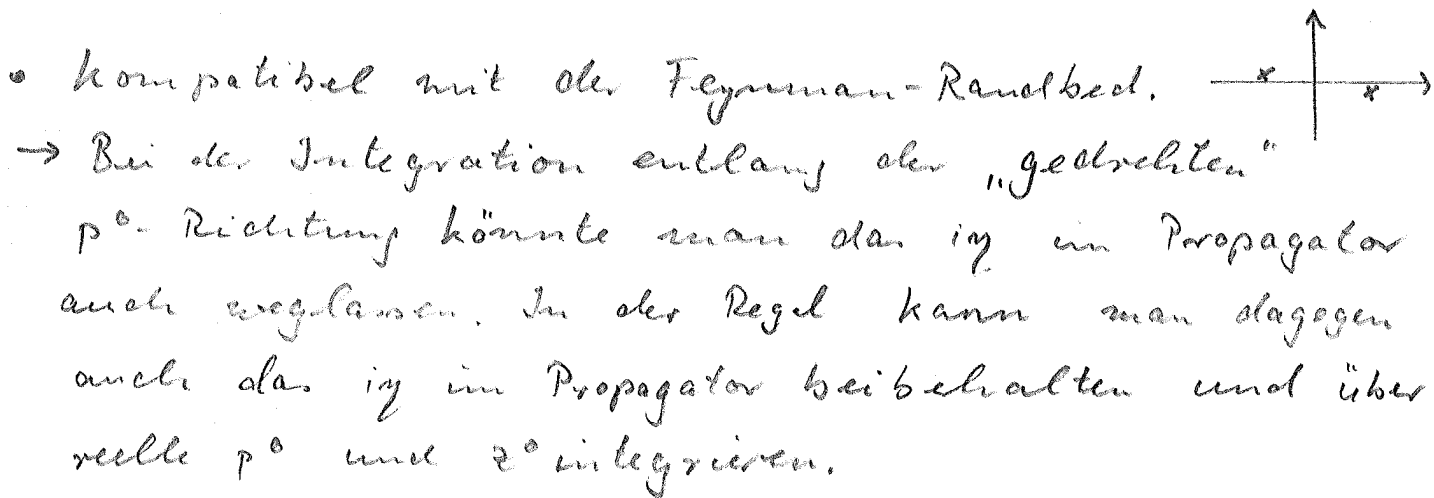 • kompatibel mit der Feynman-Randbed.
→ Bei der Integration entlang der „gedrehten“
p⁰-Richtung könnte man das iη im Propagator
auch weglassen. In der Regel kann man dagegen
auch das iη im Propagator beibehalten und über
reelle p⁰ und z⁰ integrieren.